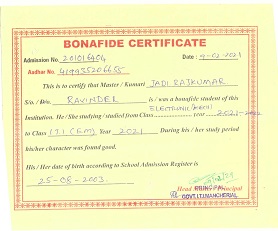 BONAFIDE CERTIFICATE
Admission No. 20101640 Date : 9-02-2021
Aadhar No. 419935206655
This is to certify that Master / Kumari JADI RAJKUMAR
S/o. / D/o. RAVINDER is / was a bonafide student of this
Institution. He / She studying / studied from Class year 2021-2022
to Class I.T.I Year 2021 During his / her study period
his/her character was found good.
His / Her date of birth according to School Admission Register is
25-08-2003.
Head Principal
PRINCIPAL
GOVT.I.T.I.MANCHERIAL